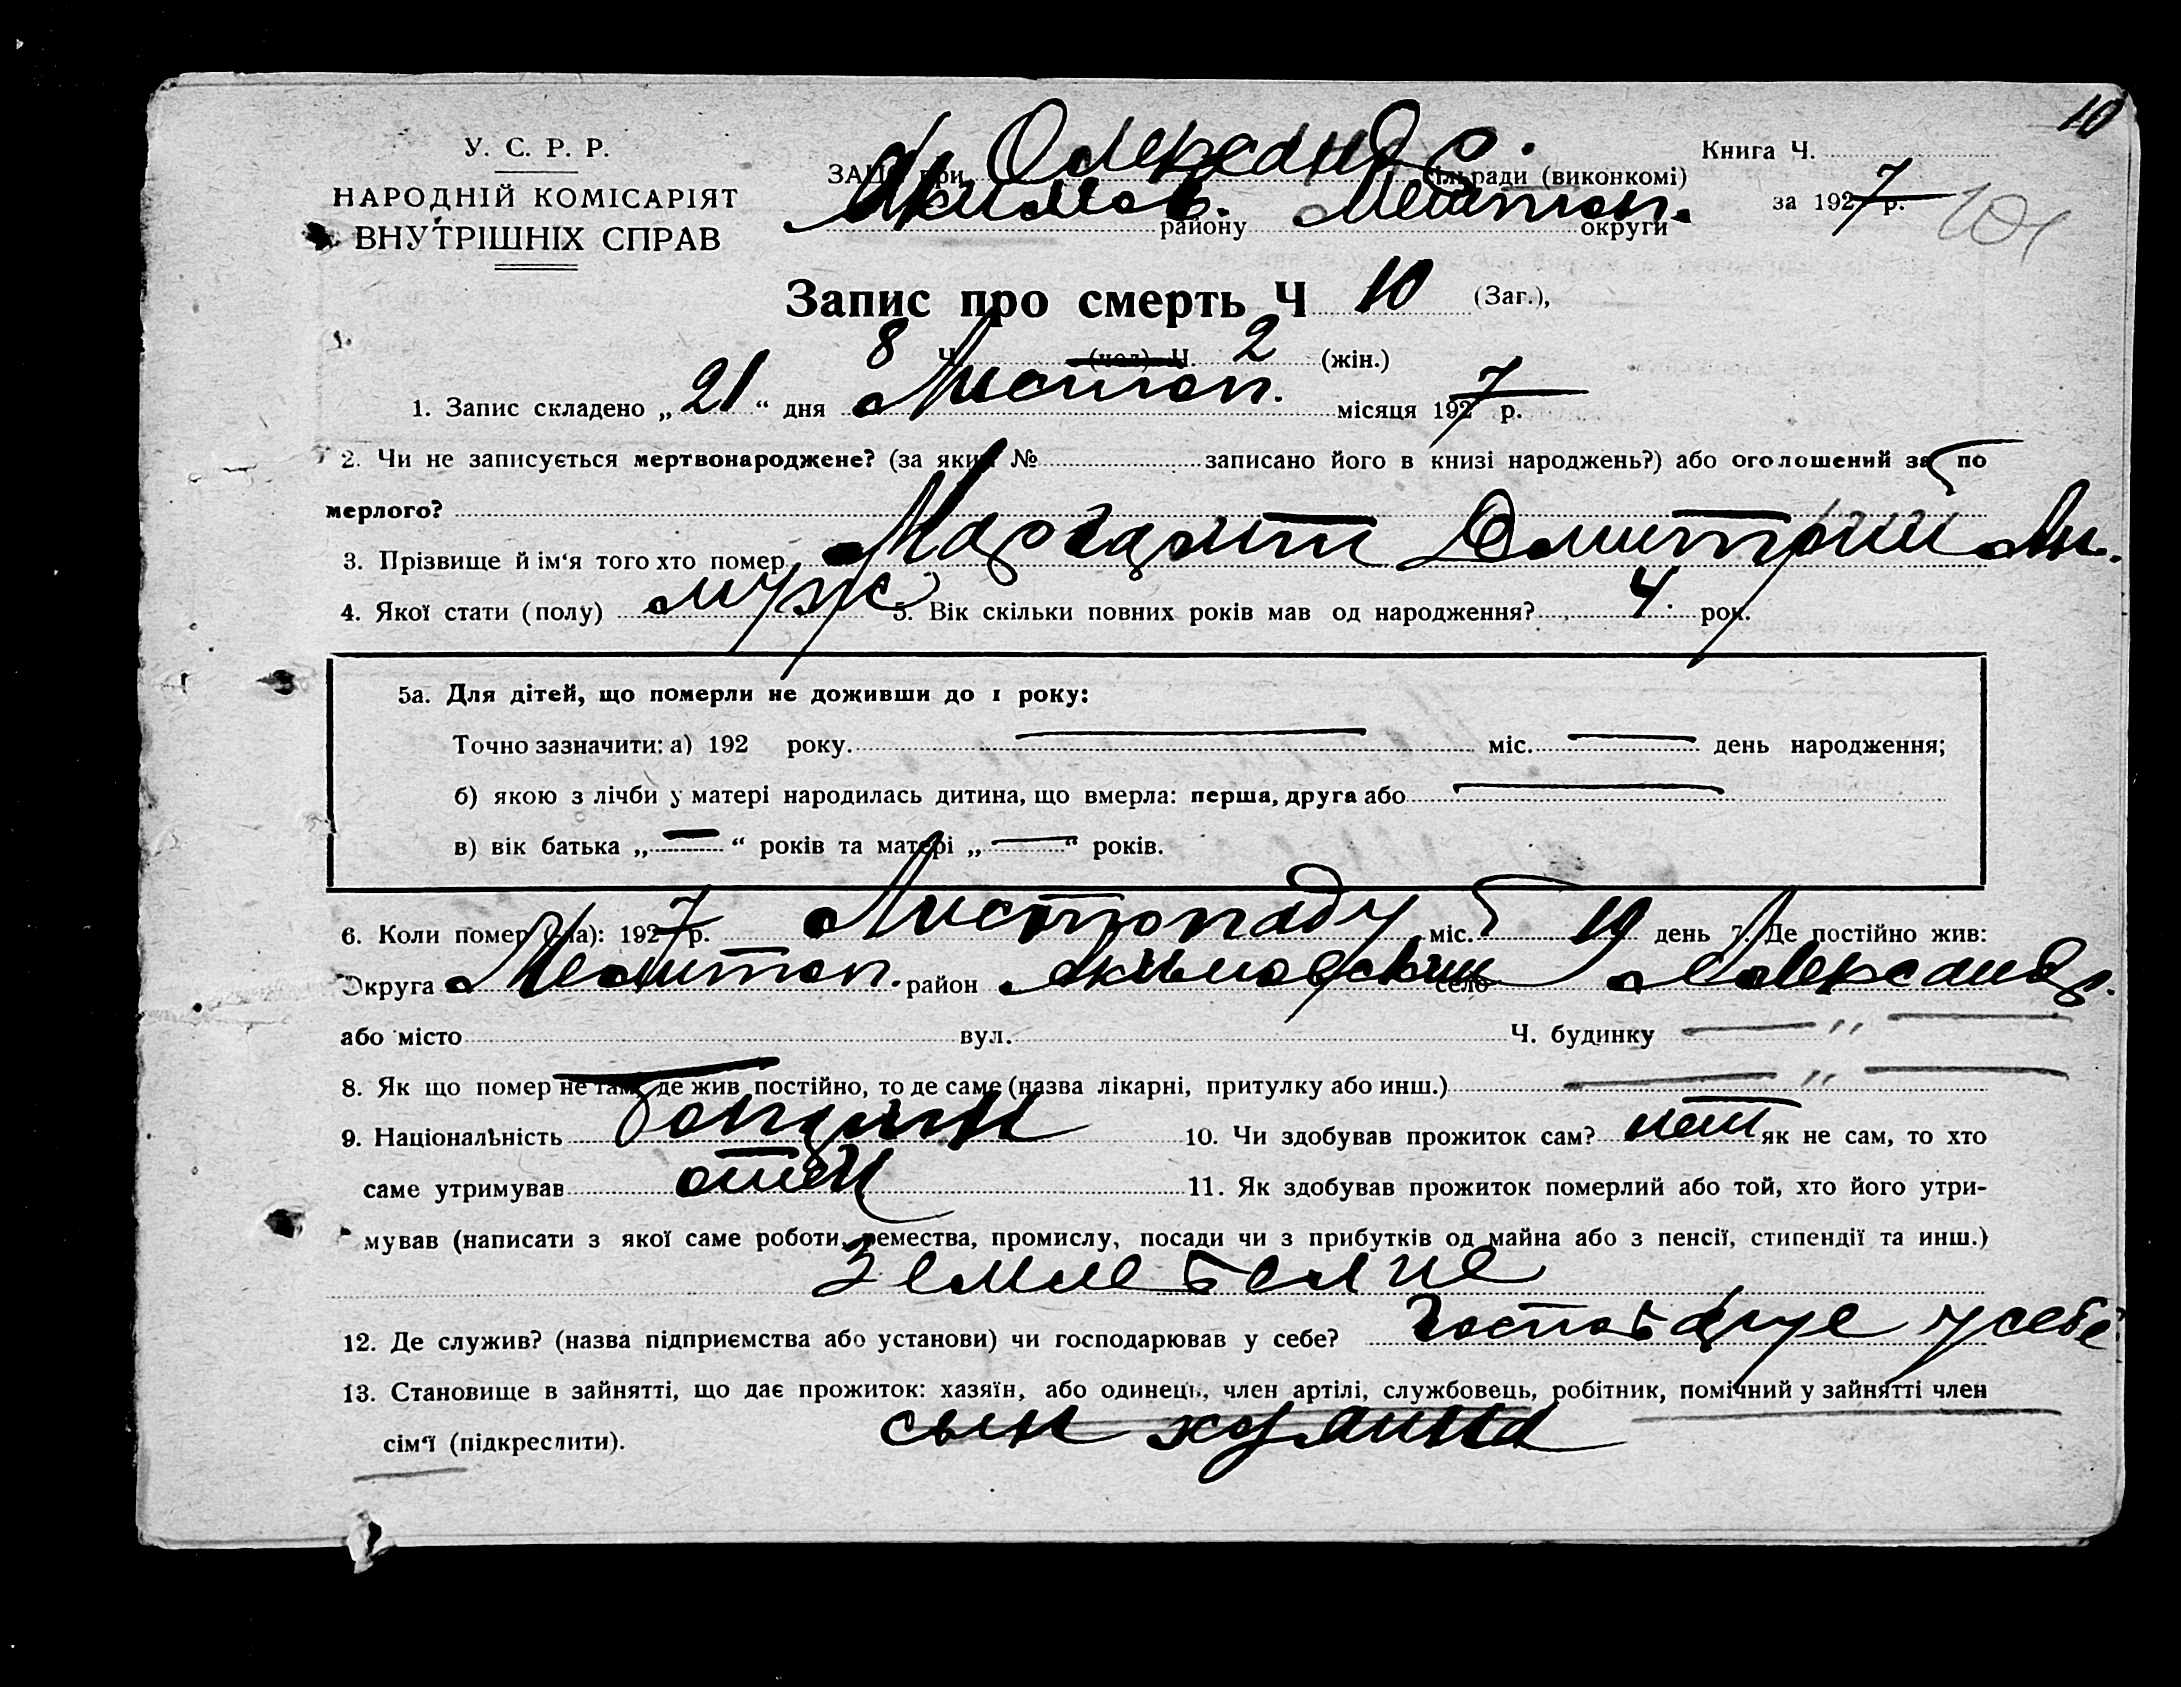 10
У. С. Р. Р.
НАРОДНІЙ КОМІСАРІЯТ
ВНУТРІШНІХ СПРАВ
ЗАЦС при Олександ с. сільради (виконкомі)
Акимов. району Мелитоп. округи
Книга Ч.
за 1927 р.
10
Запис про смерть Ч 10 (Заг.),
8 Ч. (чол) Ч. 2 (жін.)
1. Запис складено „ 21 “ дня Листоп. місяця 1927 р.
2. Чи не записується мертвонароджене? (за яким № записано його в книзі народжень?) або оголошений за по
мерлого?
3. Прізвище й ім‘я того хто помер Дмитрий Ан.
4. Якої стати (полу) муж 5. Вік скільки повних років мав од народження? 4. рок.
5а. Для дітей, що померли не доживши до 1 року:
Точно зазначити: а) 192 року. міс. день народження;
б) якою з лічби у матері народилась дитина, що вмерла: перша, друга або
в) вік батька „ — “ років та матері „ — “ років.
6. Коли помер (-ла): 1927 р. Листопаду міс. 19 день 7. Де постійно жив:
Округа Мелитоп. район Акимовский село Александр.
або місто вул. Ч. будинку — „ —
8. Як що помер не там, де жив постійно, то де саме (назва лікарні, притулку або инш.) — „ —
9. Національність 10. Чи здобував прожиток сам? нет як не сам, то хто
саме утримував отец 11. Як здобував прожиток померлий або той, хто його утри-
мував (написати з якої саме роботи, ремества, промислу, посади чи з прибутків од майна або з пенсії, стипендії та инш.)
Земледелие
12. Де служив? (назва підприємства або установи) чи господарював у себе? у себе
13. Становище в зайнятті, що дає прожиток: хазяїн, або одинець, член артілі, службовець, робітник, помічний у зайнятті член
сім‘ї (підкреслити). сын хозяина